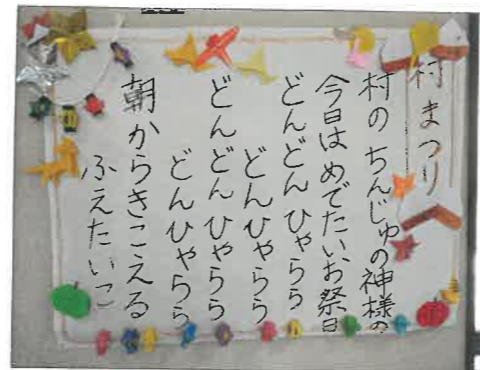 村まつり
村のちんじゅの神様の
今日はめでたいお祭日
どんどんひゃらら
どんひゃらら
どんどんひゃらら
どんひゃらら
朝からきこえる
ふえたいこ